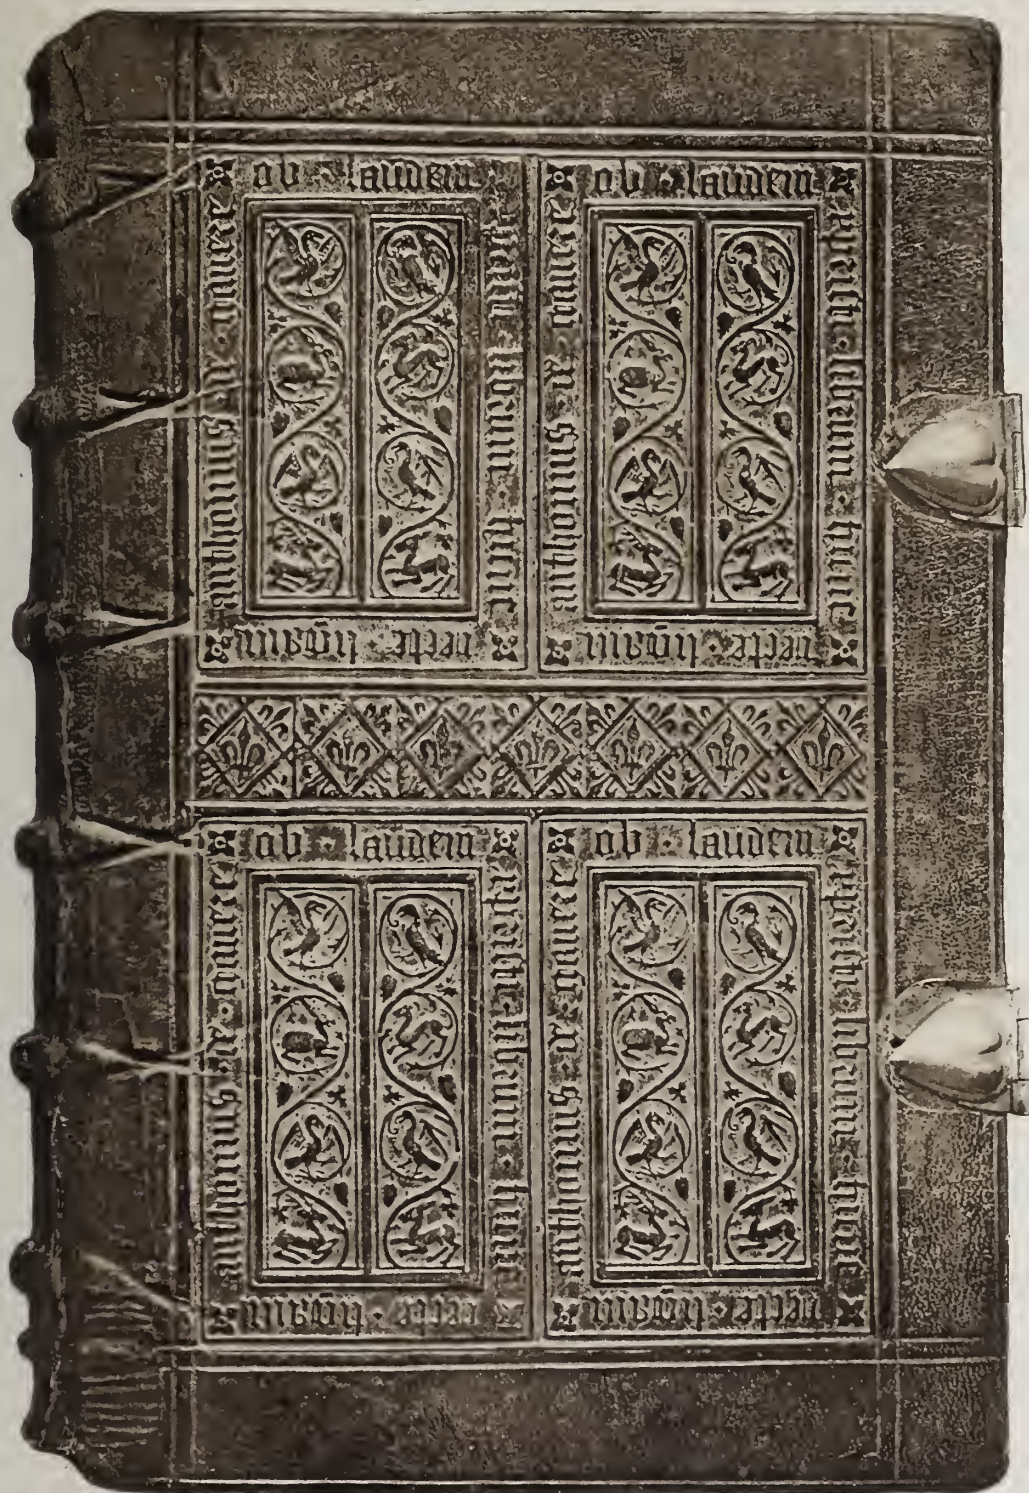 ob · laudem
xpristi · librum · hunc
recte · ligaui
anthonius · de · gauere
ob · laudem
xpristi · librum · hunc
recte · ligaui
anthonius · de · gauere
ob · laudem
xpristi · librum · hunc
recte · ligaui
anthonius · de · gauere
ob · laudem
xpristi · librum · hunc
recte · ligaui
anthonius · de · gauere